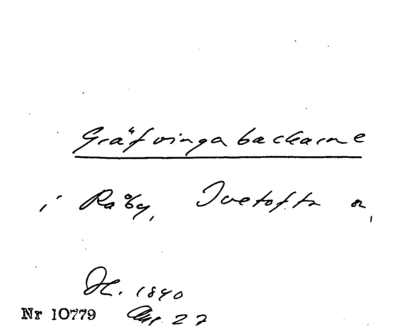 Gräfvingabackarne
i Råby, Ivetofta sn,
H. 1840
Nr 10779 Akt 27